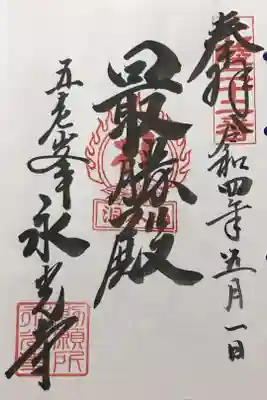 奉拝 令和四年五月一日
最勝殿
五老峯 永光寺
勅願所